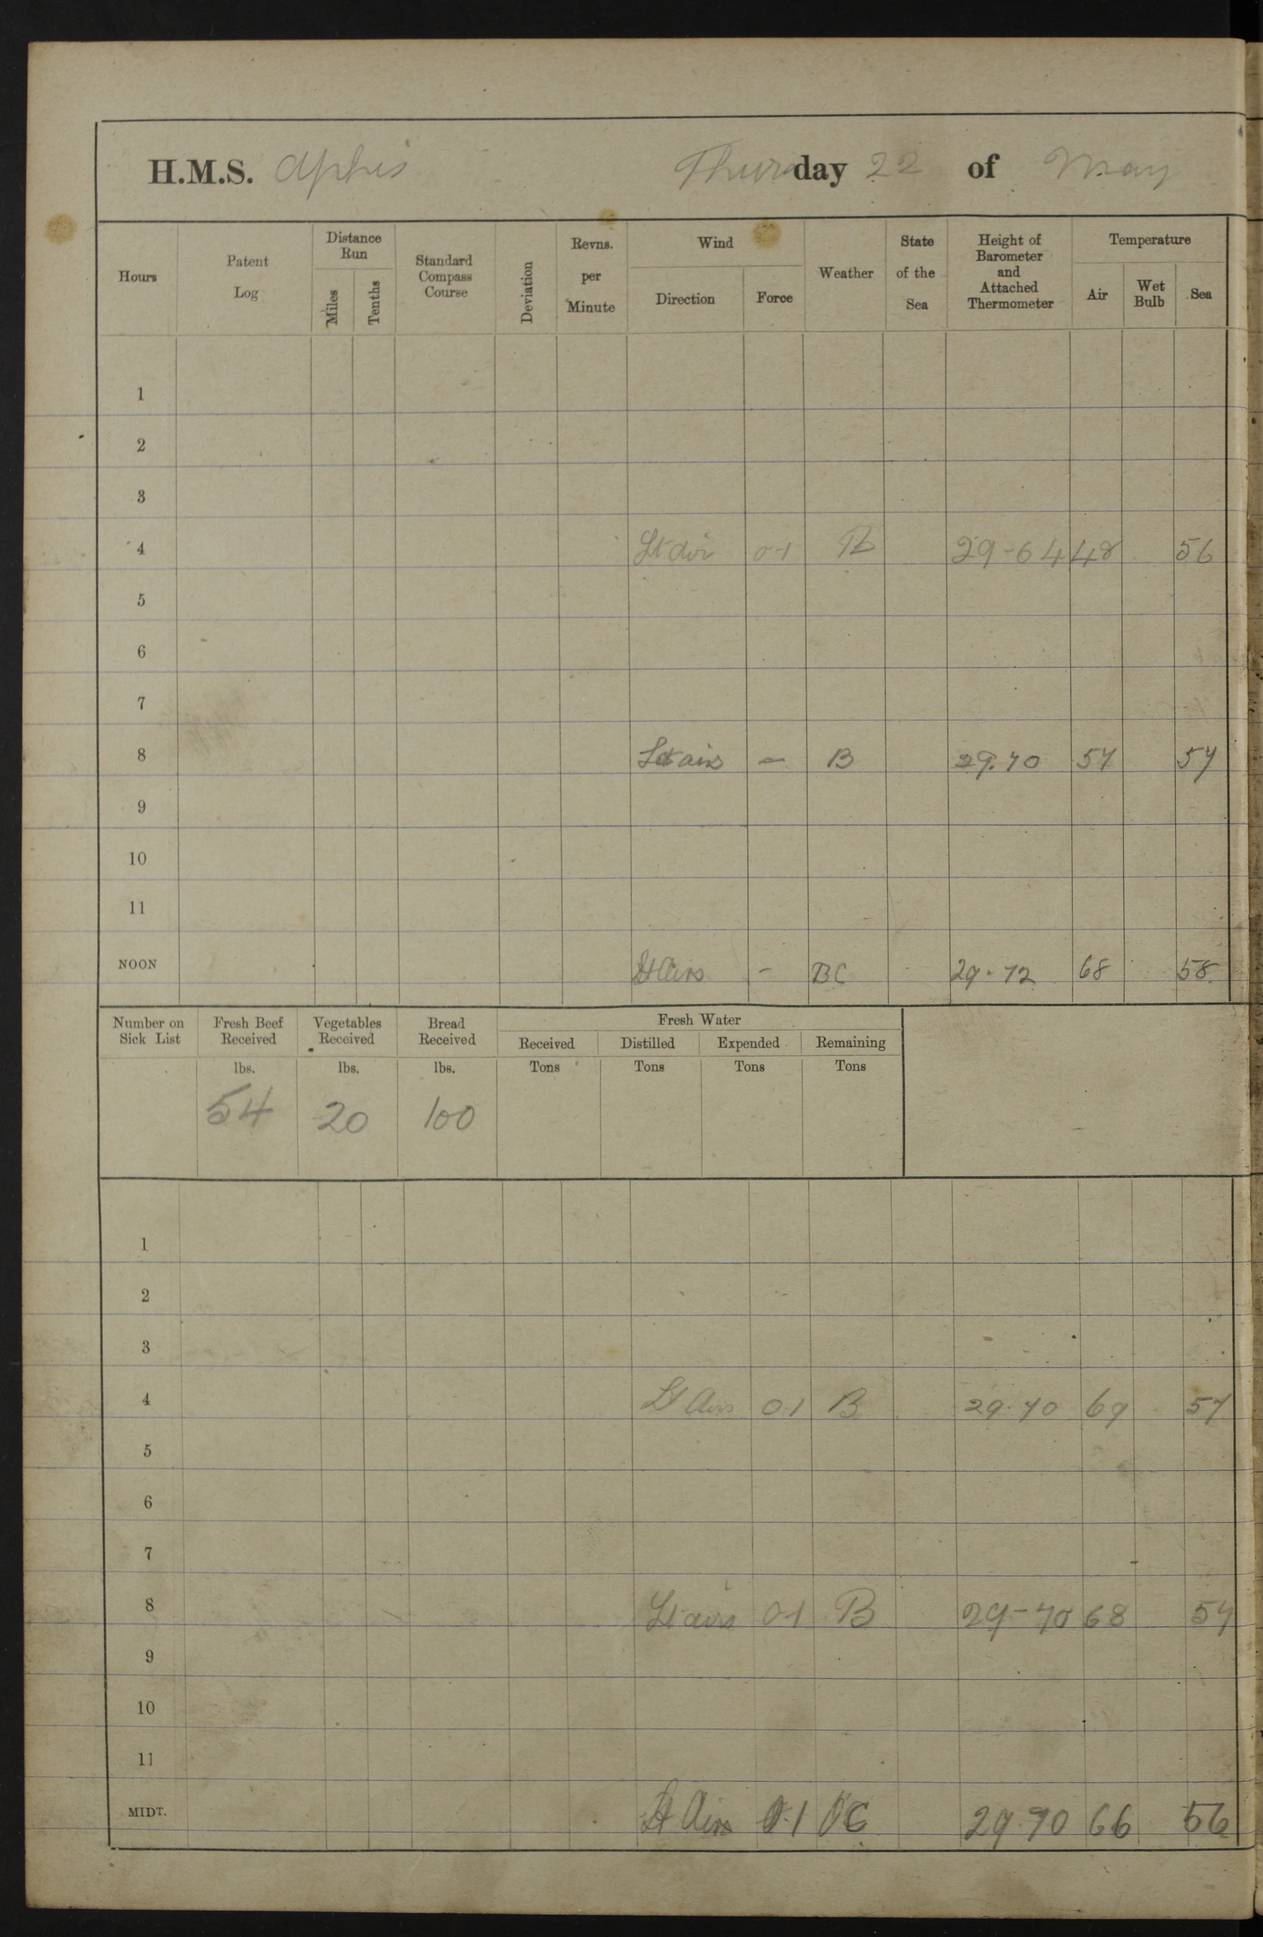 H.M.S. Aphis Thursday 22 of May
Hours Patent Log Distance Run Miles Tenths Standard Compass Course Deviation Revns. per Minute Wind Direction Force Weather State of the Sea Height of Barometer and Attached Thermometer Temperature Air Wet Bulb Sea
1
2
3
4 Lt air 0-1 B 29-64 48 56
5
6
7
8 Lt airs - B 29.70 57 57
9
10
11
NOON Lt Airs - BC 29.72 68 58
Number on Sick List Fresh Beef Received Vegetables Received Bread Received Fresh Water
Received Distilled Expended Remaining
lbs. lbs. lbs. Tons Tons Tons Tons
54 20 100
1
2
3
4 Lt Airs 0.1 B 29.70 69 57
5
6
7
8 Lt airs 0-1 B 29-70 68 57
9
10
11
MIDT. Lt Airs 0.1 C 29.70 66 56